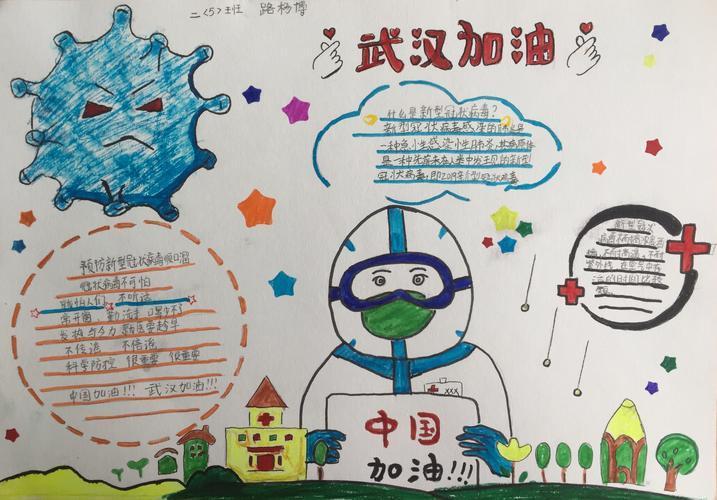 二<5>班 路杨博
武汉加油
什么是新型冠状病毒?
新型冠状病毒感染的肺炎是
一种急性感染性肺炎,其病原体
是一种先前未在人类中发现的新型
冠状病毒,即2019新型冠状病毒
预防新型冠状病毒顺口溜
冠状病毒不可怕
不听话
常开窗,勤洗手 口罩
发热乏力 就医要趁早
不传谣 不信谣
科学防控 很重要 很重要
中国加油!!! 武汉加油!!!
新型冠状
病毒
XXX
中国
加油!!!